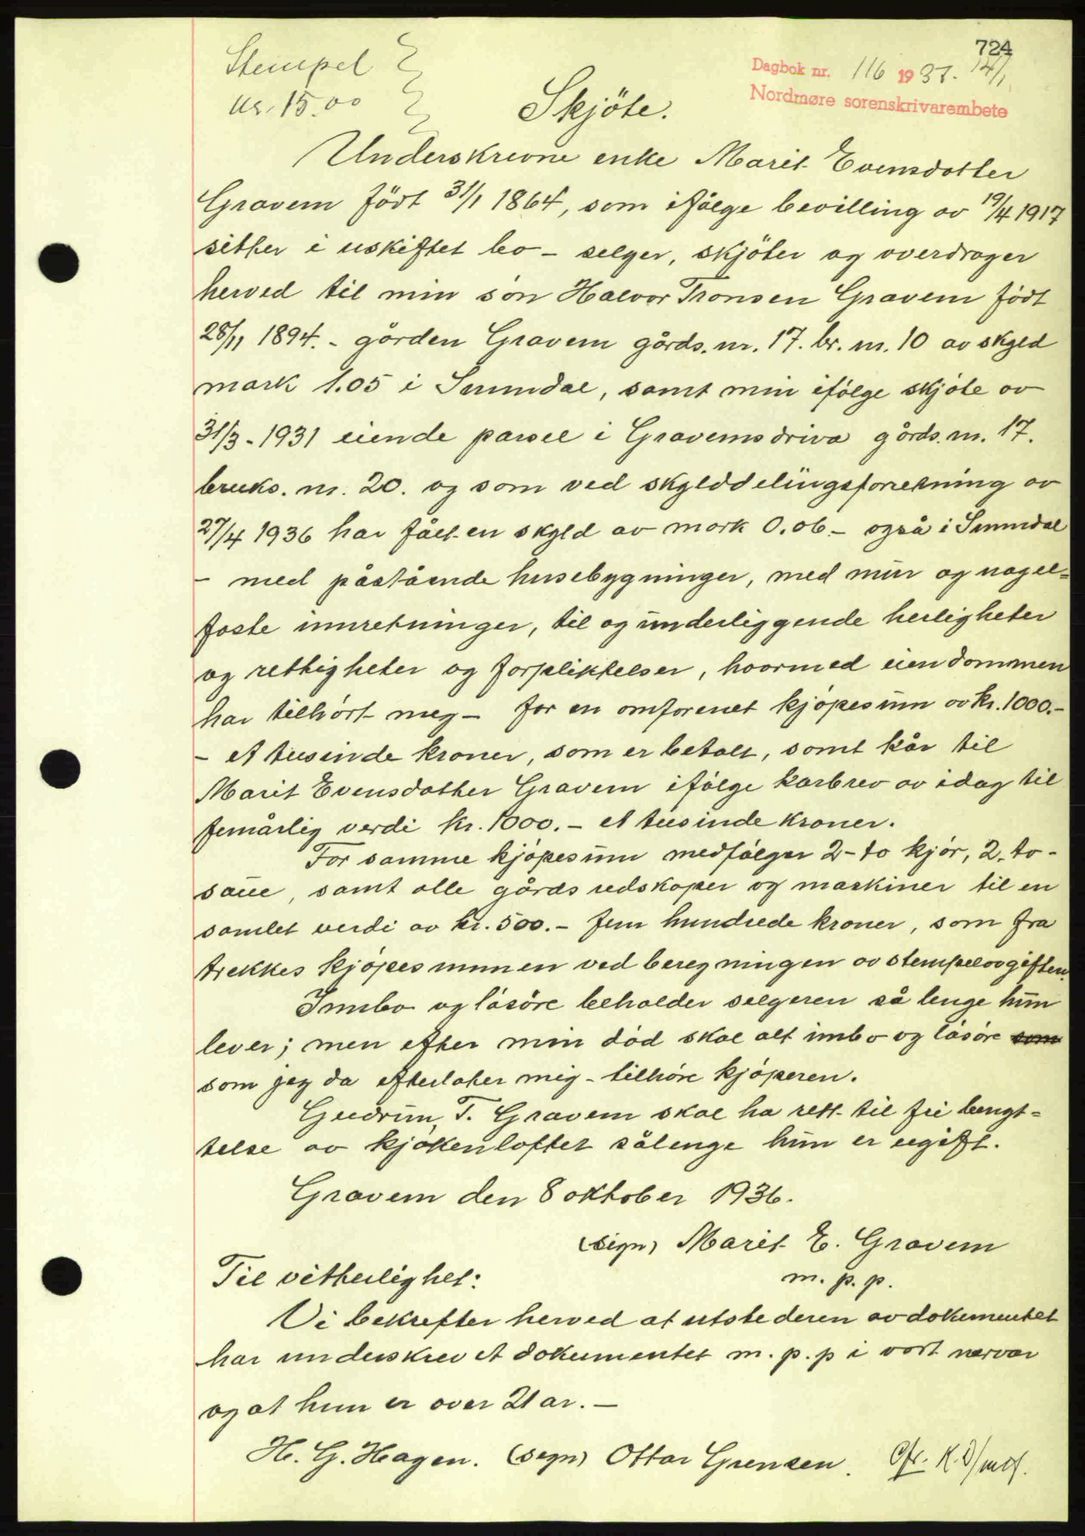 724
Stempel
kr. 15.00
Dagbok nr. 116 1937. 14/1.
Nordmøre sorenskrivarembete
Skjöte.
Underskrevne enke Marit Evensdotter
Gravem födt 31/1 1864, som ifölge bevilling av 19/4 1917
sitter i uskiftet bo - selger, skjöter og overdrager
herved til min sön Halvor Tronsen Gravem födt
28/11 1894. - gården Gravem gårds. nr. 17. br. nr. 10 av skyld
mark 1.05 i Sunndal, samt min ifölge skjöte av
31/3 - 1931 eiende parsel i Gravemsdriva gårds. nr. 17.
bruks. nr. 20. og som ved skylddelingsforretning av
27/4 1936 har fået en skyld av mark 0.06 - også i Sunndal
- med påstående husebygninger, med mur og nagel=
faste innretninger, til og underliggende herligheter
og rettigheter og forpliktelser, hvormed eiendommen
har tilhört meg - for en omforenet kjöpesum av kr. 1000.-
- et tusinde kroner, som er betalt, samt kår til
Marit Evensdatter Gravem ifölge karbrev av idag til
femårlig verdi kr. 1000. - et tusinde kroner.
For samme kjöpesum medfölger 2 - to kjör, 2 - to -
saue, samt alle gårds redskaper og maskiner til en
samlet verdi av kr. 500. - fem hundrede kroner, som fra
trekkes kjöpesummen ved beregningen av stempelavgiften.
Innbo og lösöre beholder selgeren så lenge hun
lever; men efter min död skal alt inbo og lösöre som
som jeg da efterlater mig - tilhöre kjöperen.
Gudrun T. Gravem skal ha rett til fri benyt=
telse av kjökenloftet sålenge hun er ugift.
Gravem den 8 oktober 1936.
(sign) Marit E. Gravem
m. p. p.
Til vitterlighet:
Vi bekrefter herved at utstederen av dokumentet
har underskrevet dokumentet m. p. p i vort nærvær
og at hun er over 21 ar. -
H. G. Hagen. (sign) Ottar Grensen.
Cfr.